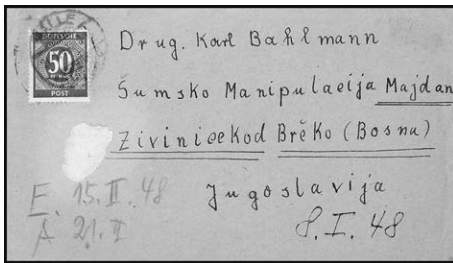 DEUTSCHE
50
PFENNIG
POST
Drug. Karl Bahlmann
Šumsko Manipulacija Majdan
Zivinice kod Brčko (Bosna)
Jugoslavija
8. I. 48
E. 15. II. 48
A 21. II